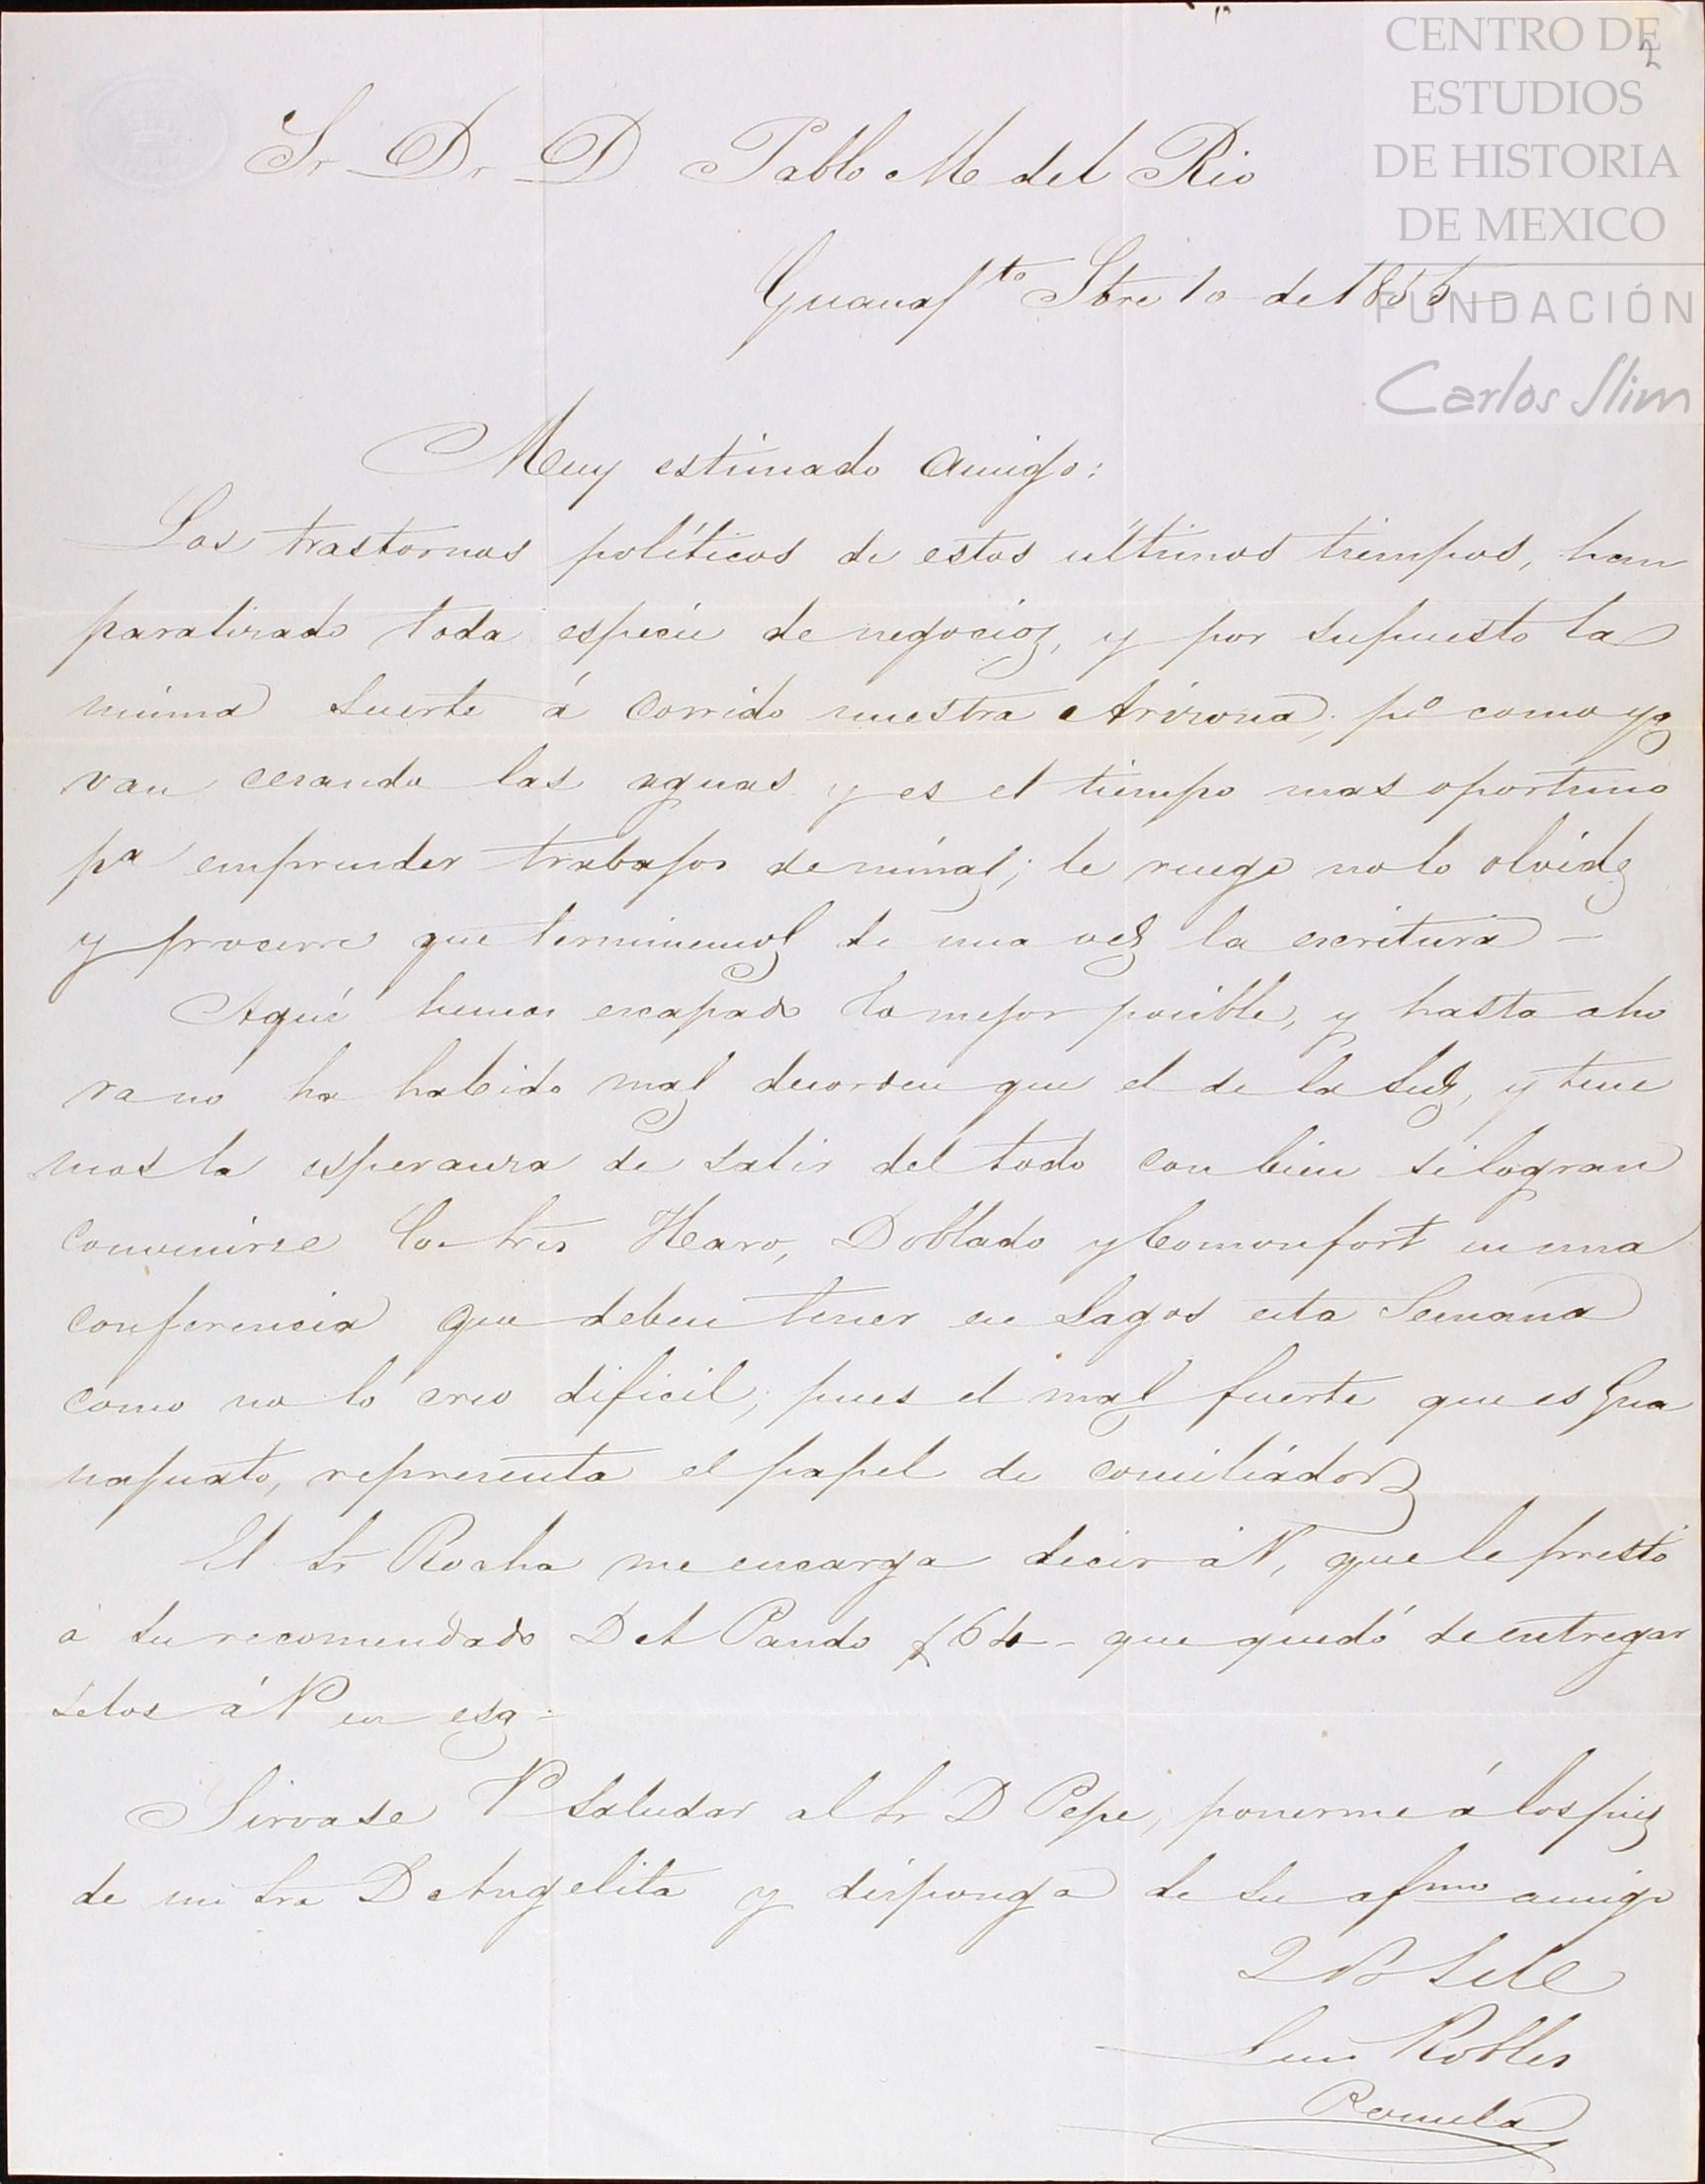 CENTRO DE
ESTUDIOS
DE HISTORIA
DE MEXICO
FUNDACIÓN
Carlos Slim
2
Sr Dr D Pablo M del Rio
Guanajto Stbre 10 de 1855
Muy estimado amigo:
Los trastornos políticos de estos últimos tiempos, han
paralizado toda especie de negocios, y por supuesto la
misma suerte á corrido nuestra Arizona; po como ya
van cesando las aguas y es el tiempo mas oportuno
pa emprender trabajos de minas; le ruego no lo olvide
y procure que terminemos de una vez la escritura –
Aquí hemos escapado lo mejor posible, y hasta aho
ra no ha habido mas desorden que el de la Luz, y tene
mos la esperanza de salir del todo con bien si logran
convenirse los tres Haro, Doblado y Comonfort en una
conferencia que deben tener en Lagos esta Semana
como no lo creo dificil; pues el mas fuerte que es Gua
najuato, representa el papel de conciliador
El Sr Rocha me encarga decir á V, que le prestó
á su recomendado D A Pando $64 – que quedó de entregar
selos á V en esa –
Sirvase V saludar al Sr D Pepe, ponerme á los pies
de mi Sra Da Angelita y disponga de su afmo amigo
Q B S M
Luis Robles